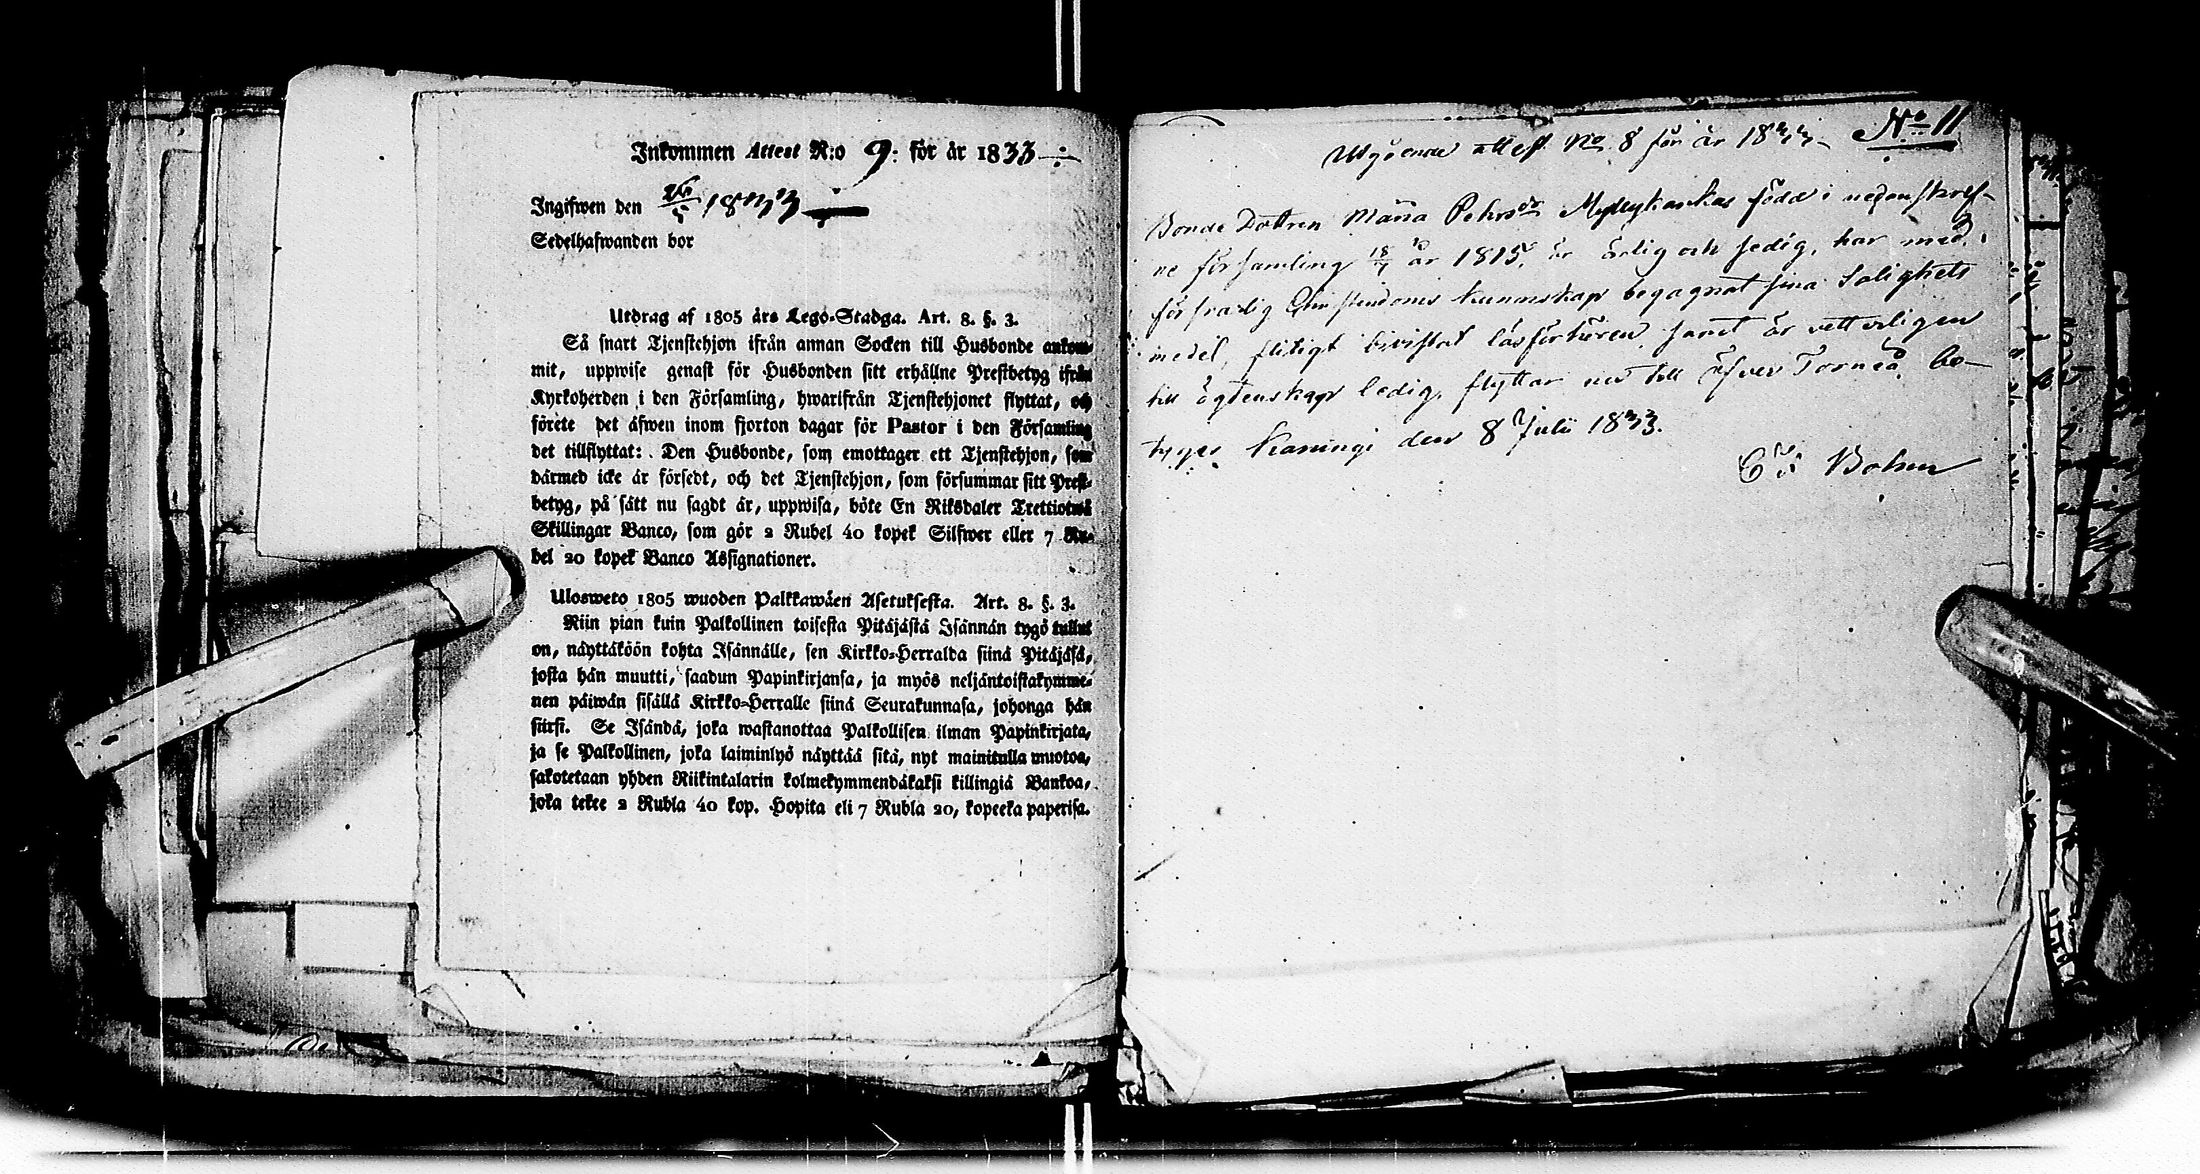 Inkommen Attest N:o 9: för år 1833
Ingifwen den 26/5 1833
Sedelhafwanden bor
Utdrag af 1805 års Lego-Stadga. Art. 8. §. 3.
Så snart Tjenstehjon ifrån annan Socken till Husbonde ankom-
mit, uppwise genast för Husbonden sitt erhållne Prestbetyg ifrån
Kyrkoherden i den Församling, hwarifrån Tjenstehjonet flyttat, och
förete det äfwen inom fjorton dagar för Pastor i den Församling
det tillflyttat: Den Husbonde, som emottager ett Tjenstehjon, som
därmed icke är försedt, och det Tjenstehjon, som försummar sitt Prest-
betyg, på sätt nu sagdt är, uppwisa, böte En Riksdaler Trettiotwå
Skillingar Banco, som gör 2 Rubel 40 kopek Silfwer eller 7 Ru-
bel 20 kopek Banco Assignationer.
Ulosweto 1805 wuoden Palkkawäen Asetuksesta. Art. 8. §. 3.
Niin pian kuin Palkollinen toisesta Pitäjästä Isännän tygö tullut
on, näyttäköön kohta Isännälle, sen Kirkko-Herralda siinä Pitäjäsä,
josta hän muutti, saadun Papinkirjansa, ja myös neljäntoistakymme-
nen päiwän sisällä Kirkko-Herralle siinä Seurakunnasa, johonga hän
siirsi. Se Isändä, joka wastanottaa Palkollisen ilman Papinkirjata,
ja se Palkollinen, joka laiminlyö näyttää sitä, nyt mainitulla muotoa,
sakotetaan yhden Riikintalarin kolmekymmendäkaksi killingiä Bankoa,
joka tekee 2 Rubla 40 kop. Hopita eli 7 Rubla 20, kopeeka paperisa.
Utgående attest No 8 för år 1833 No 11
Bonde Dottren Maria Pehrsdr född i nedenskref-
ne församling 18/7 år 1815, är ärlig och sedig, har med
försvarlig Christendoms kunnskap begagnat sina Salighets
medel, flitigt bivistat läsförhören, samt är vetterligen
till ägtenskap ledig, flyttar nu till Öfver Torneå, be-
tygar Karungi den 8 Julii 1833.
Bohm